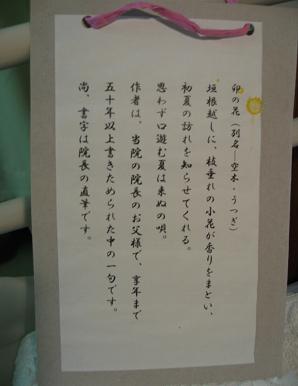 卯の花（別名−空木・うつぎ）
垣根越しに、枝垂れの小花が香りをまとい、
初夏の訪れを知らせてくれる。
思わず口遊む夏は来ぬの唄。
作者は、当院の院長のお父様で、享年まで
五十年以上書きためられた中の一句です。
尚、書字は院長の直筆です。